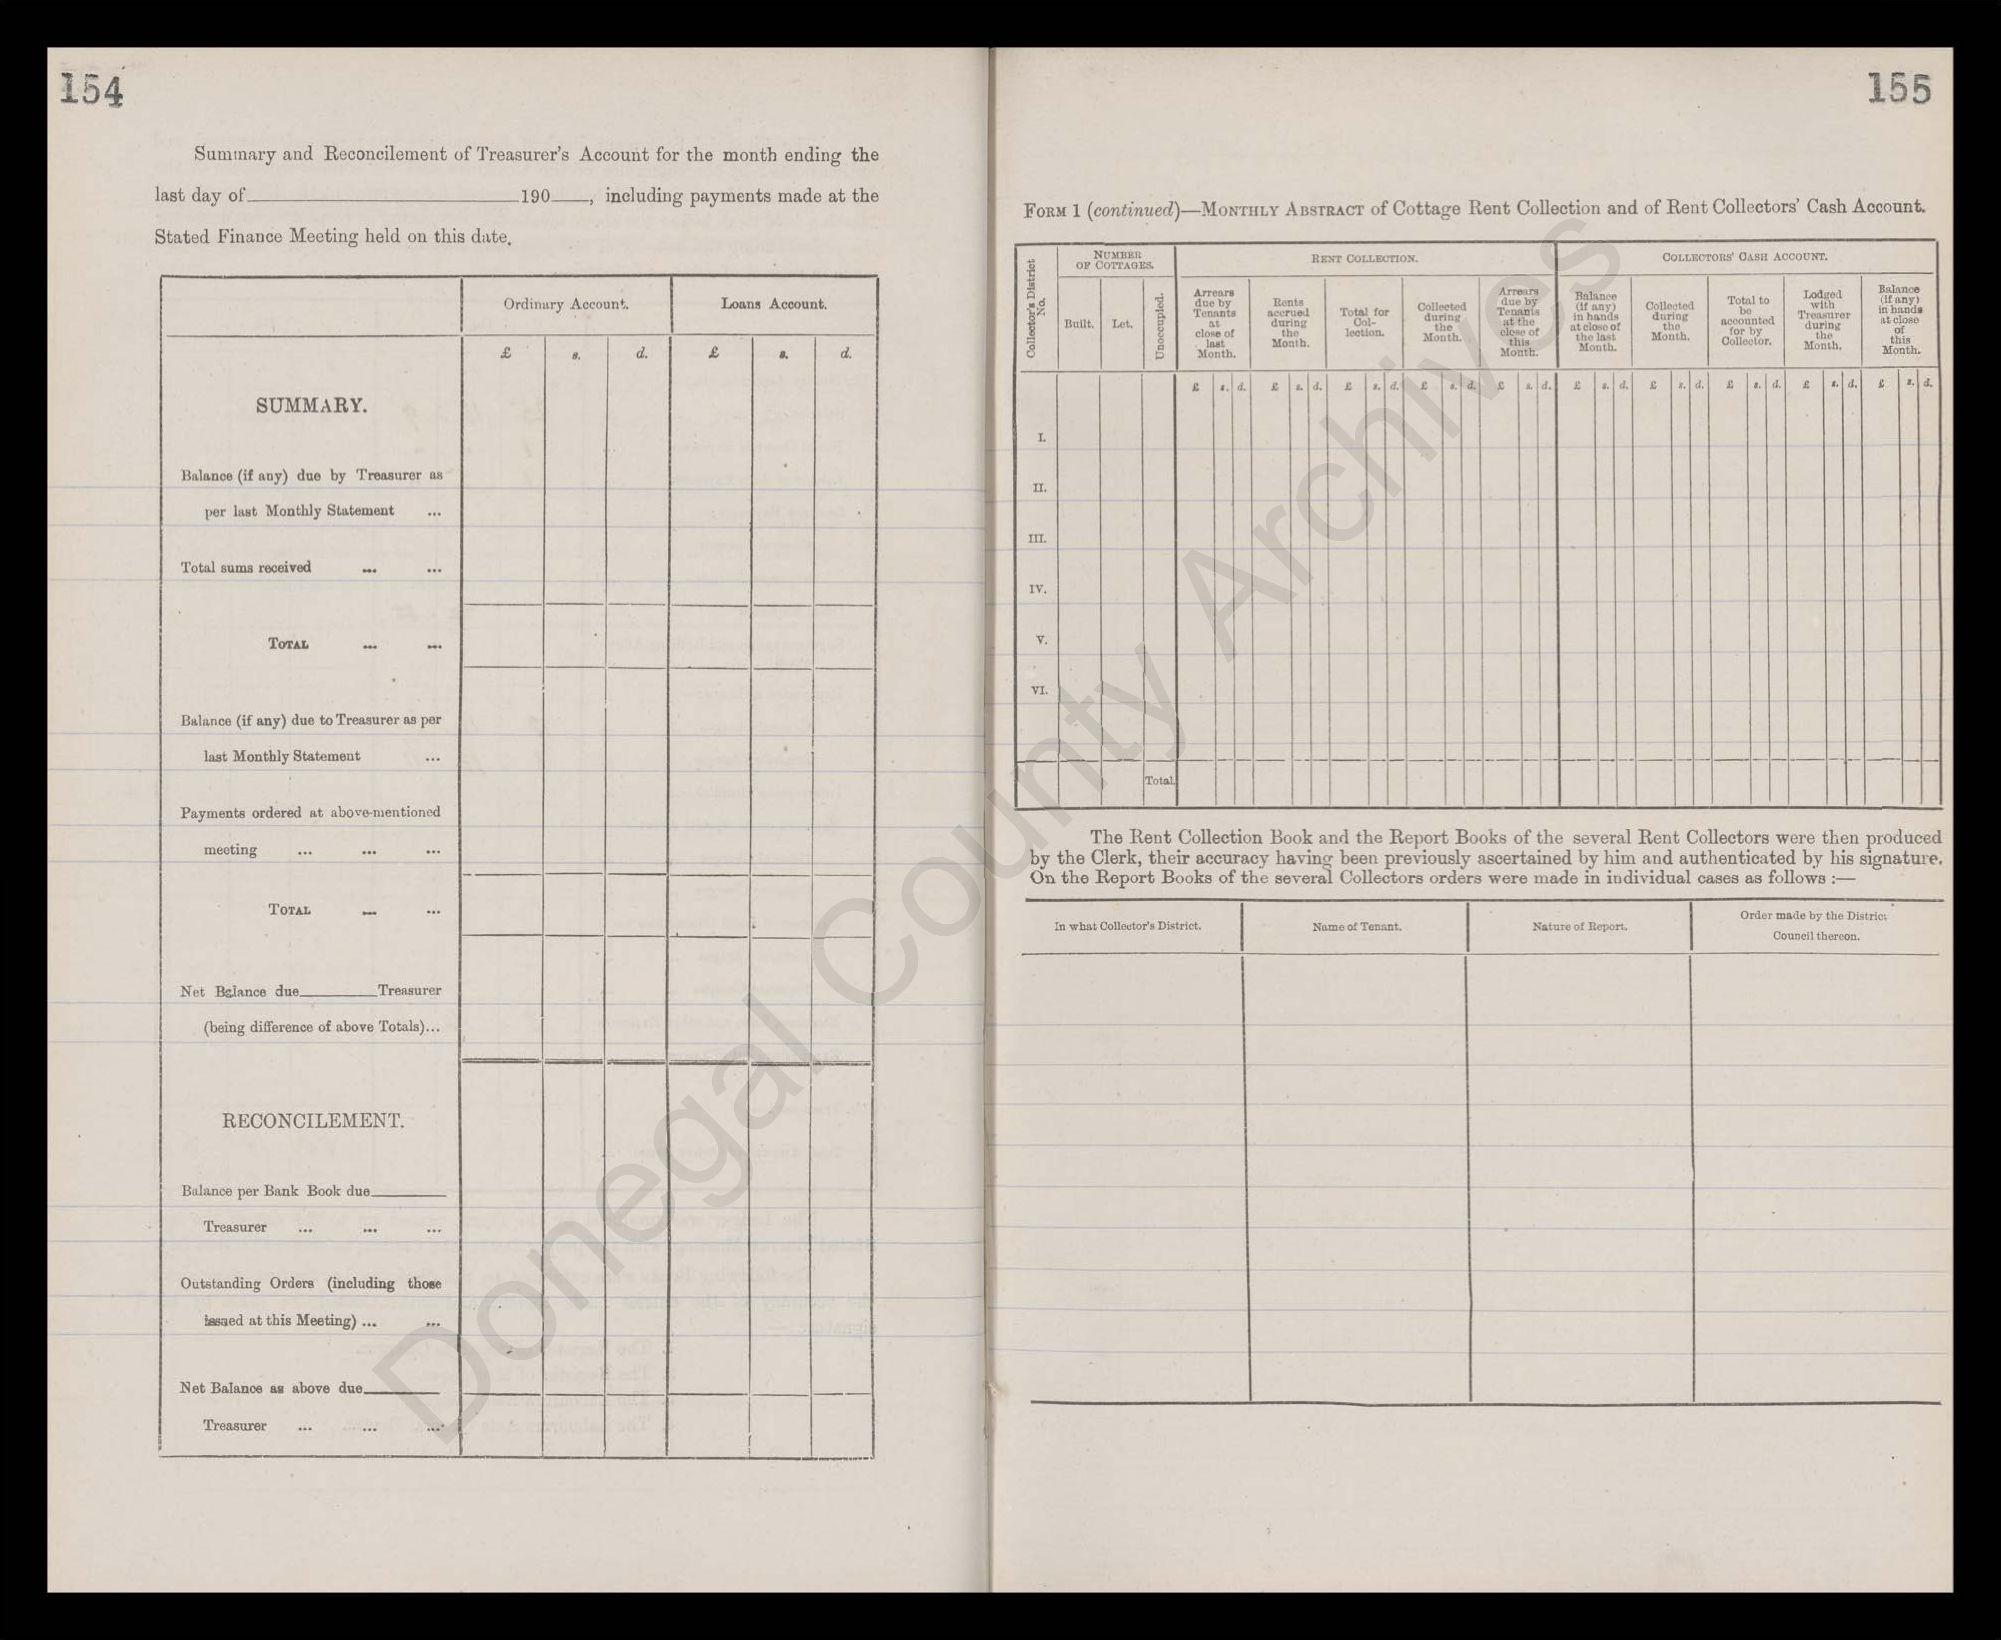 154
Summary and Reconcilement of Treasurer's Account for the month ending the
last day of 190 , including payments made at the
Stated Finance Meeting held on this date.
Ordinary Account. Loans Account.
£ s. d. £ s. d.
SUMMARY.
Balance (if any) due by Treasurer as
per last Monthly Statement ...
Total sums received ... ...
TOTAL ... ...
Balance (if any) due to Treasurer as per
last Monthly Statement ...
Payments ordered at above-mentioned
meeting ... ... ...
TOTAL ... ...
Net Balance due Treasurer
(being difference of above Totals)...
RECONCILEMENT.
Balance per Bank Book due
Treasurer ... ... ...
Outstanding Orders (including those
issued at this Meeting) ... ...
Net Balance as above due
Treasurer ... ... ...
155
FORM 1 (continued)—MONTHLY ABSTRACT of Cottage Rent Collection and of Rent Collectors' Cash Account.
Collector's District
No.
NUMBER
OF COTTAGES.
Built. Let. Unoccupied.
RENT COLLECTION.
Arrears
due by
Tenants
at
close of
last
Month.
Rents
accrued
during
the
Month.
Total for
Col-
lection.
Collected
during
the
Month.
Arrears
due by
Tenants
at the
close of
this
Month.
COLLECTORS' CASH ACCOUNT.
Balance
(if any)
in hands
at close of
the last
Month.
Collected
during
the
Month.
Total to
be
accounted
for by
Collector.
Lodged
with
Treasurer
during
the
Month.
Balance
(if any)
in hands
at close
of
this
Month.
£ s. d. £ s. d. £ s. d. £ s. d. £ s. d. £ s. d. £ s. d. £ s. d. £ s. d. £ s. d.
I.
II.
III.
IV.
V.
VI.
Total.
The Rent Collection Book and the Report Books of the several Rent Collectors were then produced
by the Clerk, their accuracy having been previously ascertained by him and authenticated by his signature.
On the Report Books of the several Collectors orders were made in individual cases as follows :—
In what Collector's District. Name of Tenant. Nature of Report. Order made by the District
Council thereon.
Donegal County Archives